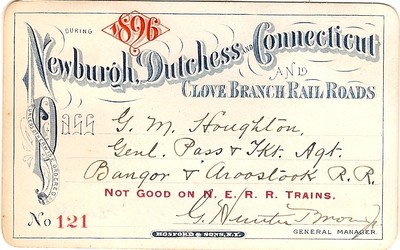 DURING 1896
Newburgh, Dutchess AND Connecticut
AND
CLOVE BRANCH RAIL ROADS
Pass G. M. Houghton,
Genl. Pass & Tkt. Agt.
Bangor & Aroostook R. R.
NOT GOOD ON N. E. R. R. TRAINS.
No 121
G. Hunter Brown
GENERAL MANAGER.
HOSFORD & SONS, N.Y.